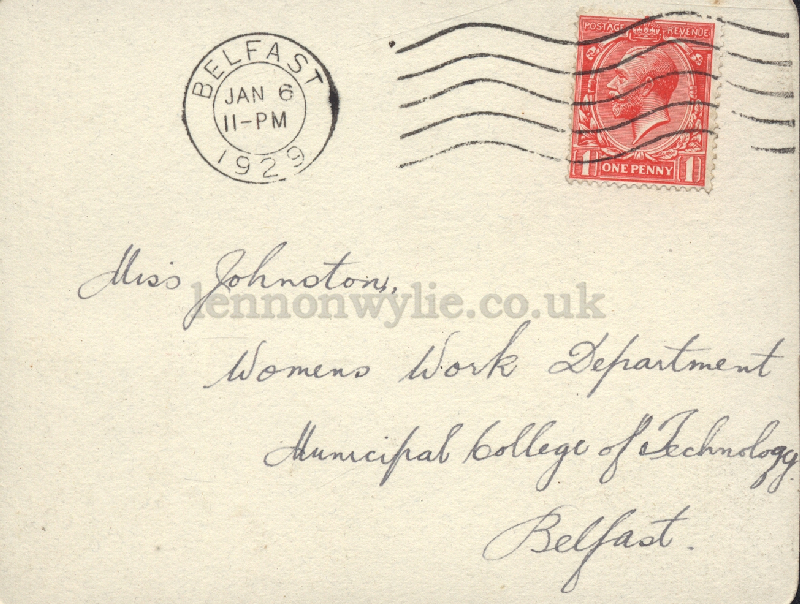 BELFAST
JAN 6
11-PM
1929
POSTAGE REVENUE
1 ONE PENNY 1
Miss Johnston,
lennonwylie.co.uk
Womens Work Department
Municipal College of Technology
Belfast.